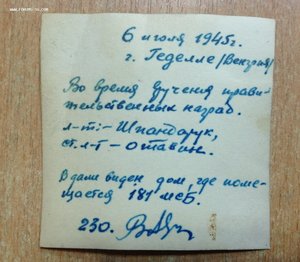 6 июля 1945г.
г. Геделле /Венгрия/
Во время вручения прави-
тельственных наград.
л-т: - Шпандарук,
ст. л-т - Отавин.
Вдали виден дом, где поме-
щается 181 мсб.
230.